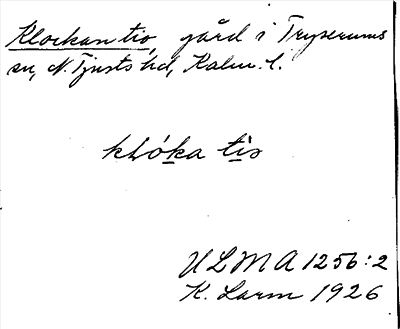 Klockan tio, gård i Tryserums
sn, N. Tjusts hd, Kalm. l.
klóka tìo
ULMA 1256:2
K. Larm 1926